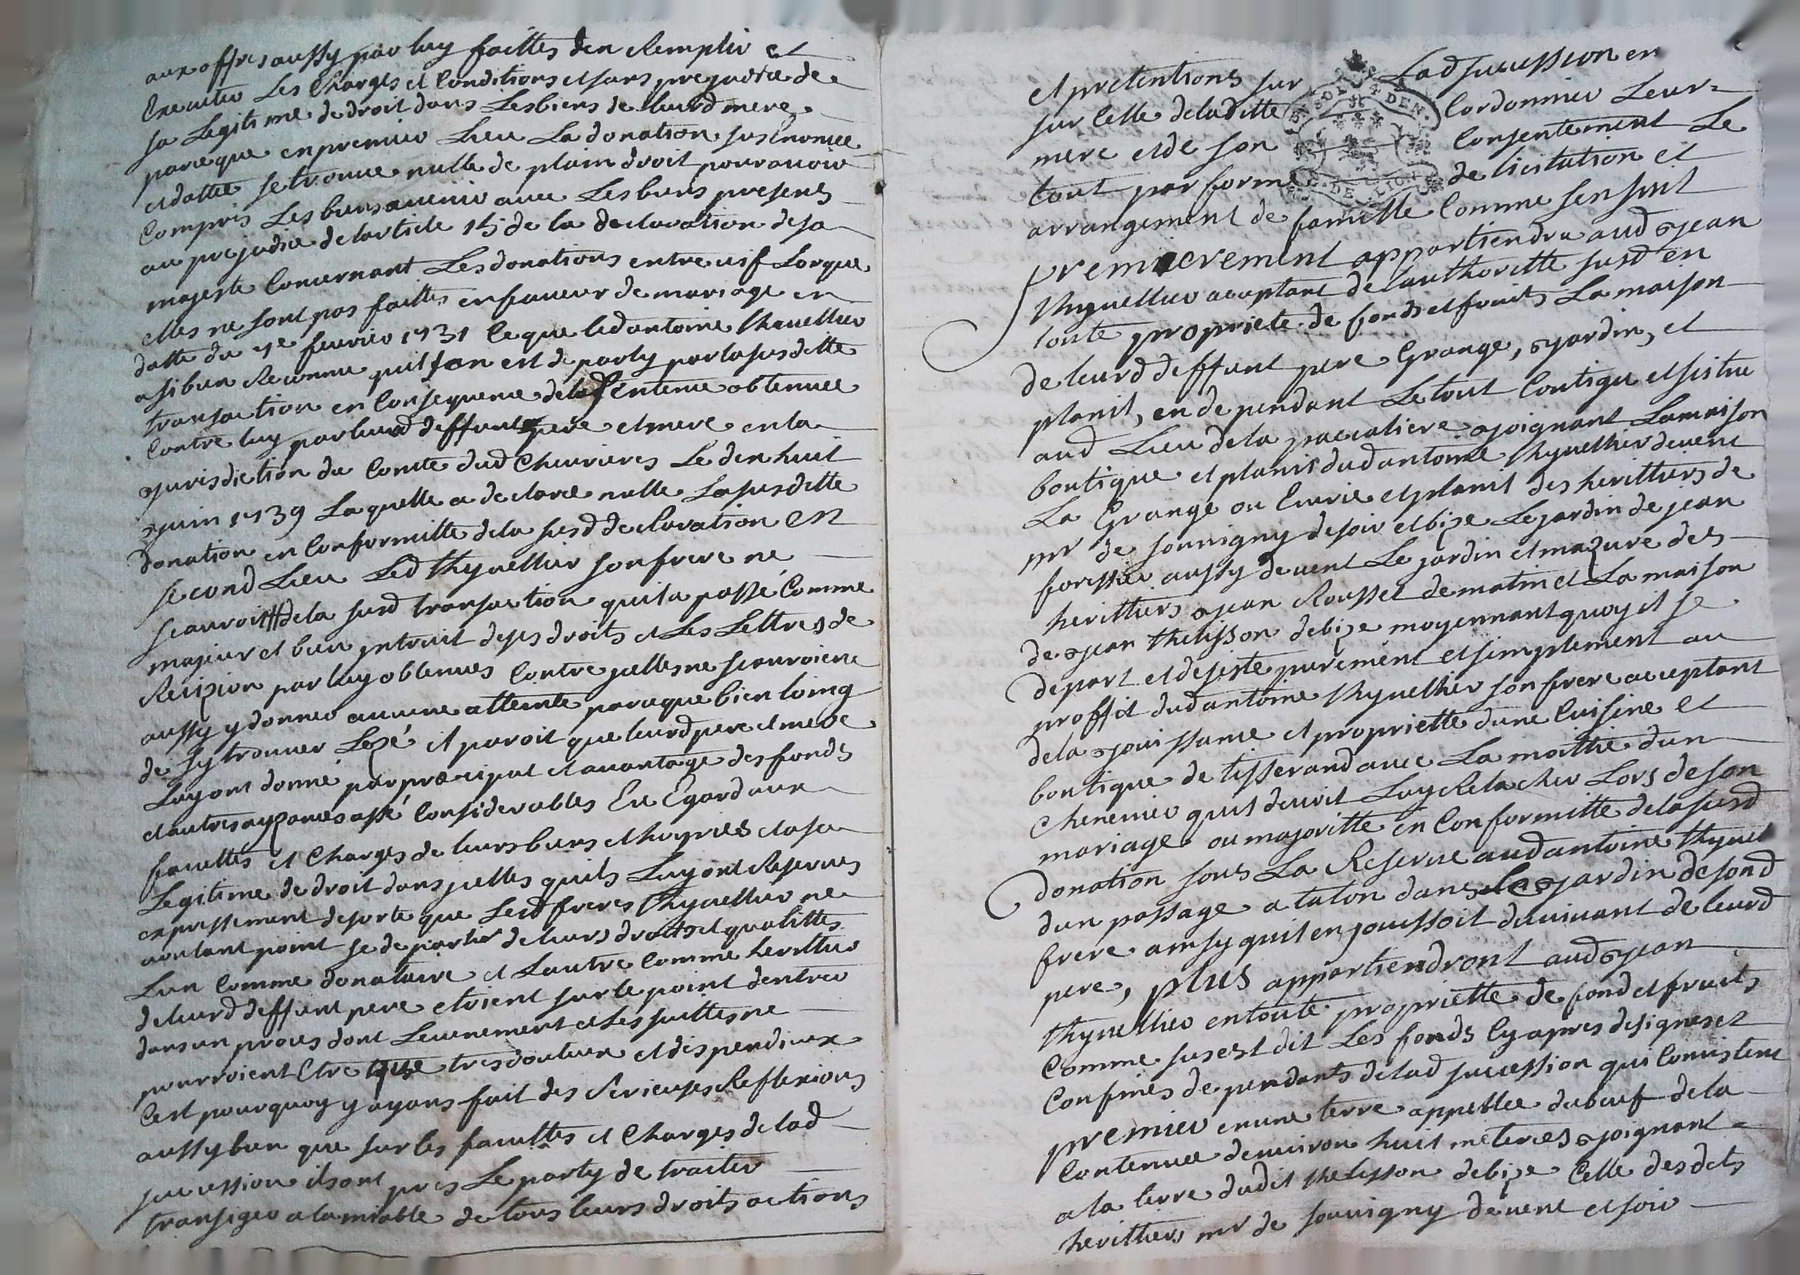 aux offres aussy par luy faittes den Remplir et
Executer Les Charges et Conditions et sans prejudice de
sa Legitime de droit dans Les biens de leurd mere
parceque en premier Lieu La donation susenoncee
et dattee se trouve nulle de plain droit pour avoir
Compris Les biens avenir avec Les biens presens
au prejudice de larticle 15 de la declaration de sa
majesté Concernant Les donations entre vif Lorque
elles ne sont pas faittes en faveur de mariage en
datte du fevrier 1731 Ce que led antoine thyvellier
a si bien Reconnu quil sen est departy par la susditte
transaction en Consequence de lad sentence obtenue
Contre luy par leurd deffunt pere et mere en la
jurisdiction du Comte dud Chevrieres Le dix huit
juin 1739 Laquelle a declaré nulle La susditte
donation en Conformitté de la susd declaration Et
second Lieu Led thyvellier son frere ne
scauroit de la susd transaction quil a passé Comme
majeur et bien intruit de ses droits et Les Lettres de
Recizion par luy obtenues Contre jcelles ne scauroient
aussy y donner aucune atteinte parceque bien loing
de sy trouver Lezé il paroit que leurd pere et mere
Luy ont donné par præciput et avantage des fonds
et autres ayzances assé Considerables Eu Egard aux
facultés et Charges de leurs biens et hoyries et a sa
Legitime de droit dans jcelles quils Luy ont Reservés
expressement de sorte que Lesd freres thyvellier ne
voulant point se departir de leurs droits et qualittés
Lun Comme donataire et Lautre Comme heritier
de leurd deffunt pere etoient sur le point dentrer
dans un proces dont Levenement et Les suittes ne
pourroient Etre que tres douteux et dispendieux
Cest pourquoy y ayans fait des serieuses Reflexions
aussy bien que sur les facultés et Charges de lad
succession ils ont pris Le party de traiter
transiger a lamiable de tous leurs droits actions
et pretentions sur Lad succession en
sur Celle de laditte Cordonnier Leur
mere et de son Consentement Le
tout par forme de licitation et
arrangement de famille Comme sensuit
premierement appartiendra aud jean
thyvellier acceptant de lauthoritté susd en
toute proprieté de fonds et fruits La maison
de leurd deffunt pere Grange, jardin, et
planit, en dependant Le tout Contigu et situé
aud Lieu de la joignant La maison
boutique et planit dud antoine thyvellier de vent
La Grange ou Ecurie et planit des heritiers de
mr de souvigny de soir et bize Le jardin de jean
forissier aussy de vent Le jardin et mazure des
heritiers jean Rousset de matin et La maison
de jean thelisson de bize moyennant quoy il se
depart et desiste purement et simplement au
proffit dud antoine thyvellier son frere acceptant
de la jouissance et proprietté dune Cuisine et
boutique de tisserand avec La moittié dun
chenevier quil devoit Luy Relacher Lors de son
mariage ou majoritté en Conformitté de la susd
donation sous La Reserve aud antoine thyvel
dun passage a talon dans Le jardin de sond
frere ainsy quil en jouissoit du vivant de leurd
pere, plus appartiendront aud jean
thyvellier en toute proprietté de fond et fruits
Comme sus est dit Les fonds Cy apres designés et
Confinés dependants de lad succession qui Consistent
premier en une terre appellee du bœuf de la
Contenue denviron huit meterées joignant
a la terre dudit thelisson de bize Celle desdits
heritiers mr de souvigny de vent et soir